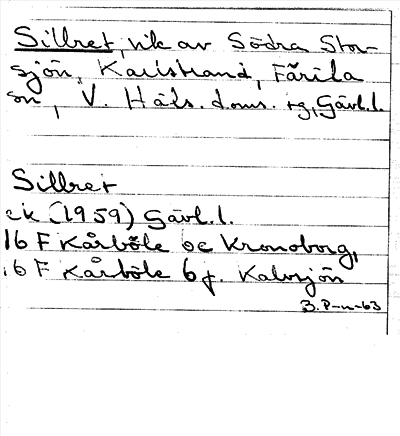 Sillret, vik av Södra Stor-
sjön, Karlstrand, Färila
sn, V. Häls. doms. tg, Gävl. l.
Sillret
ek (1959) Gävl. l.
16 F Kårböle oc Kronoborg,
16 F Kårböle 6f. Kalvsjön
B. P-n-63